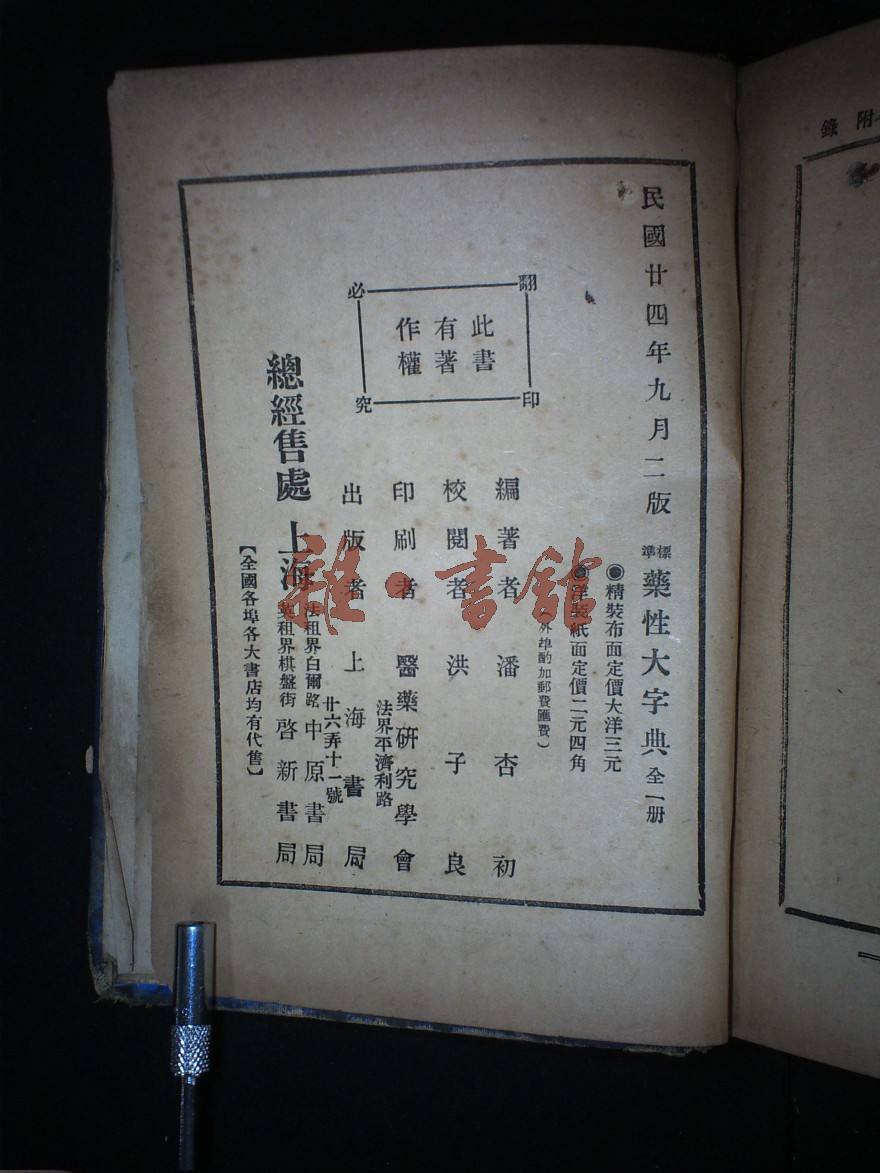 附錄
民國廿四年九月二版
標準藥性大字典全一册
●精裝布面定價大洋三元
●洋裝紙面定價二元四角
外埠酌加郵費匯費）
翻印必究
此書
有著
作權
編著者 潘杏初
校閱者 洪子良
印刷者 醫藥研究學會
法界平濟利路
廿六弄十一號
出版者 上海書局
總經售處 上海
法租界白爾路 中原書局
英租界棋盤街 啓新書局
【全國各埠各大書店均有代售】
雜·書館